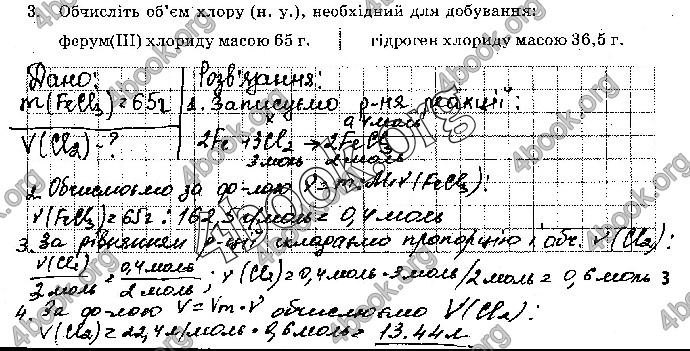 3. Обчисліть об'єм хлору (н. у.), необхідний для добування:
ферум(III) хлориду масою 65 г. | гідроген хлориду масою 36,5 г.
Дано:
m(FeCl3)=65г
V(Cl2)-?
Розв'язання:
1. Записуємо р-ня реакції:
x 0,4моль
2Fe+3Cl2→2FeCl3
3моль 2моль
2. Обчислюємо за ф-лою ν=m:M ν(FeCl3):
ν(FeCl3)=65г:162,5г/моль=0,4моль
3. За рівнянням р-ції складаємо пропорцію і обч. ν(Cl2):
ν(Cl2)/3моль=0,4моль/2моль; ν(Cl2)=0,4моль·3моль/2моль=0,6моль
4. За ф-лою V=Vm·ν обчислюємо V(Cl2):
V(Cl2)=22,4л/моль·0,6моль=13.44л
4book.org